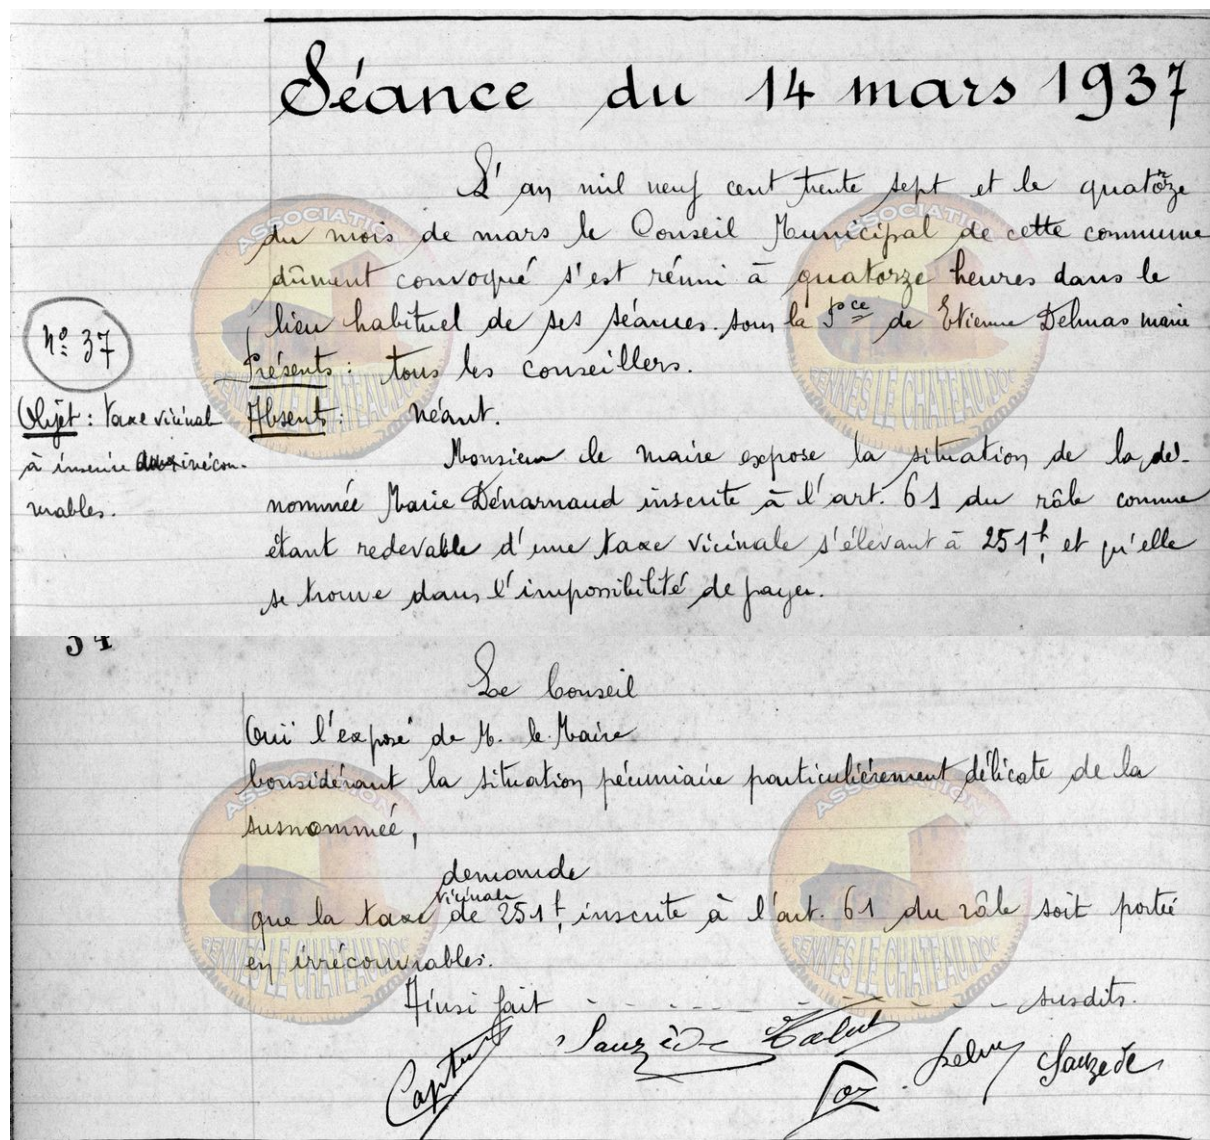 Séance du 14 mars 1937
L'an mil neuf cent trente sept et le quatorze
du mois de mars le Conseil Municipal de cette commune
dûment convoqué s'est réuni à quatorze heures dans le
lieu habituel de ses séances. sous la Pce de Etienne Delmas maire
N° 37
Présents : tous les conseillers.
Objet : taxe vicinale
à inscrire irrécou-
vrables.
Absents : Néant.
Monsieur le maire expose la situation de la dé-
nommée Marie Dénarnaud inscrite à l'art. 61 du rôle comme
étant redevable d'une taxe vicinale s'élevant à 251f, et qu'elle
se trouve dans l'impossibilité de payer.
54
Le Conseil
Ouï l'exposé de M. le Maire
Considérant la situation pécuniaire particulièrement délicate de la
susnommée,
demande
que la taxe vicinale de 251f, inscrite à l'art. 61 du rôle soit portée
en irrécouvrables.
Ainsi fait - - - - - - - - - - susdits.
Captier Sauzède
Sauzède
ASSOCIATION
RENNES LE CHATEAU.DOC
ASSOCIATION
RENNES LE CHATEAU.DOC
ASSOCIATION
RENNES LE CHATEAU.DOC
ASSOCIATION
RENNES LE CHATEAU.DOC